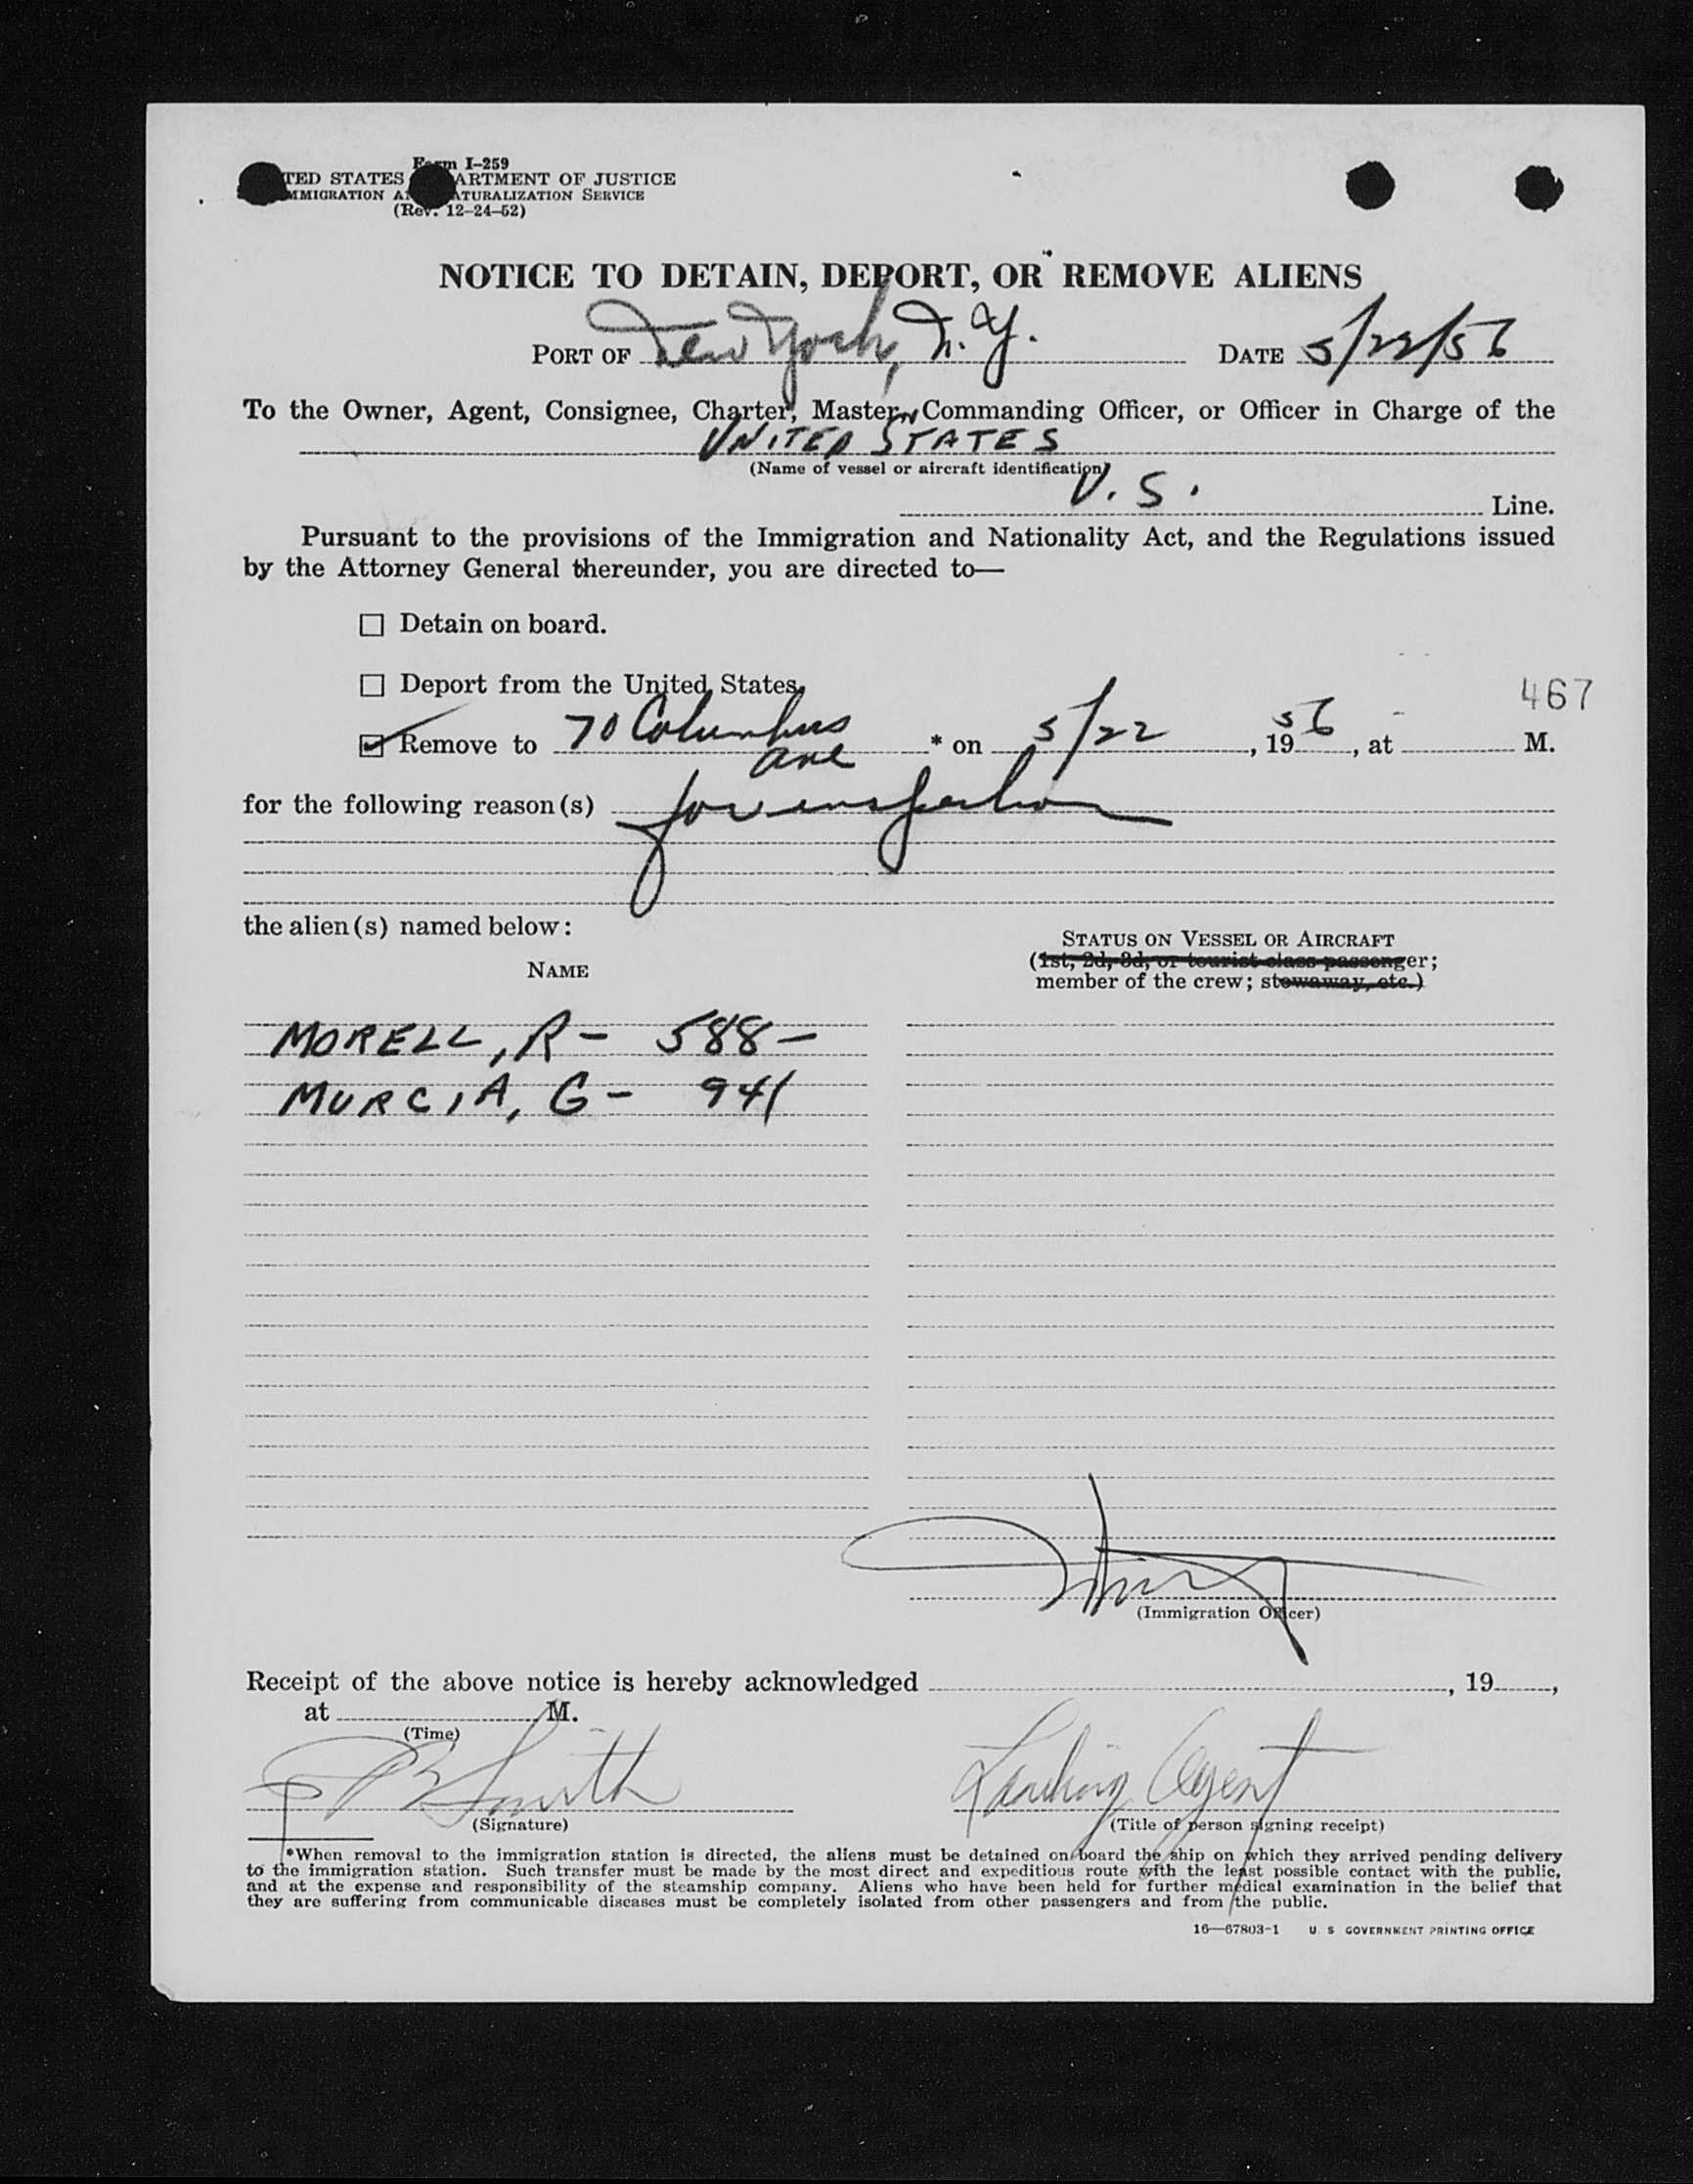 Form I-259
TED STATES ARTMENT OF JUSTICE
MMIGRATION A TURALIZATION SERVICE
(Rev. 12-24-52)
NOTICE TO DETAIN, DEPORT, OR REMOVE ALIENS
PORT OF New York, N.Y. DATE 5/22/56
To the Owner, Agent, Consignee, Charter, Master, Commanding Officer, or Officer in Charge of the
UNITED STATES
(Name of vessel or aircraft identification)
U.S. Line.
Pursuant to the provisions of the Immigration and Nationality Act, and the Regulations issued
by the Attorney General thereunder, you are directed to—
☐ Detain on board.
☐ Deport from the United States.
467
☑ Remove to 70 Columbus Ave * on 5/22, 1956, at M.
for the following reason(s) for inspection
the alien(s) named below:
NAME
STATUS ON VESSEL OR AIRCRAFT
(1st, 2d, 3d, or tourist class passenger;
member of the crew; stowaway, etc.)
MORELL, R - 588 -
MURCIA, G - 941
(Immigration Officer)
Receipt of the above notice is hereby acknowledged , 19 ,
at M.
(Time)
Smith
Landing Agent
(Signature)
(Title of person signing receipt)
*When removal to the immigration station is directed, the aliens must be detained on board the ship on which they arrived pending delivery
to the immigration station. Such transfer must be made by the most direct and expeditious route with the least possible contact with the public,
and at the expense and responsibility of the steamship company. Aliens who have been held for further medical examination in the belief that
they are suffering from communicable diseases must be completely isolated from other passengers and from the public.
16—67803-1 U S GOVERNMENT PRINTING OFFICE